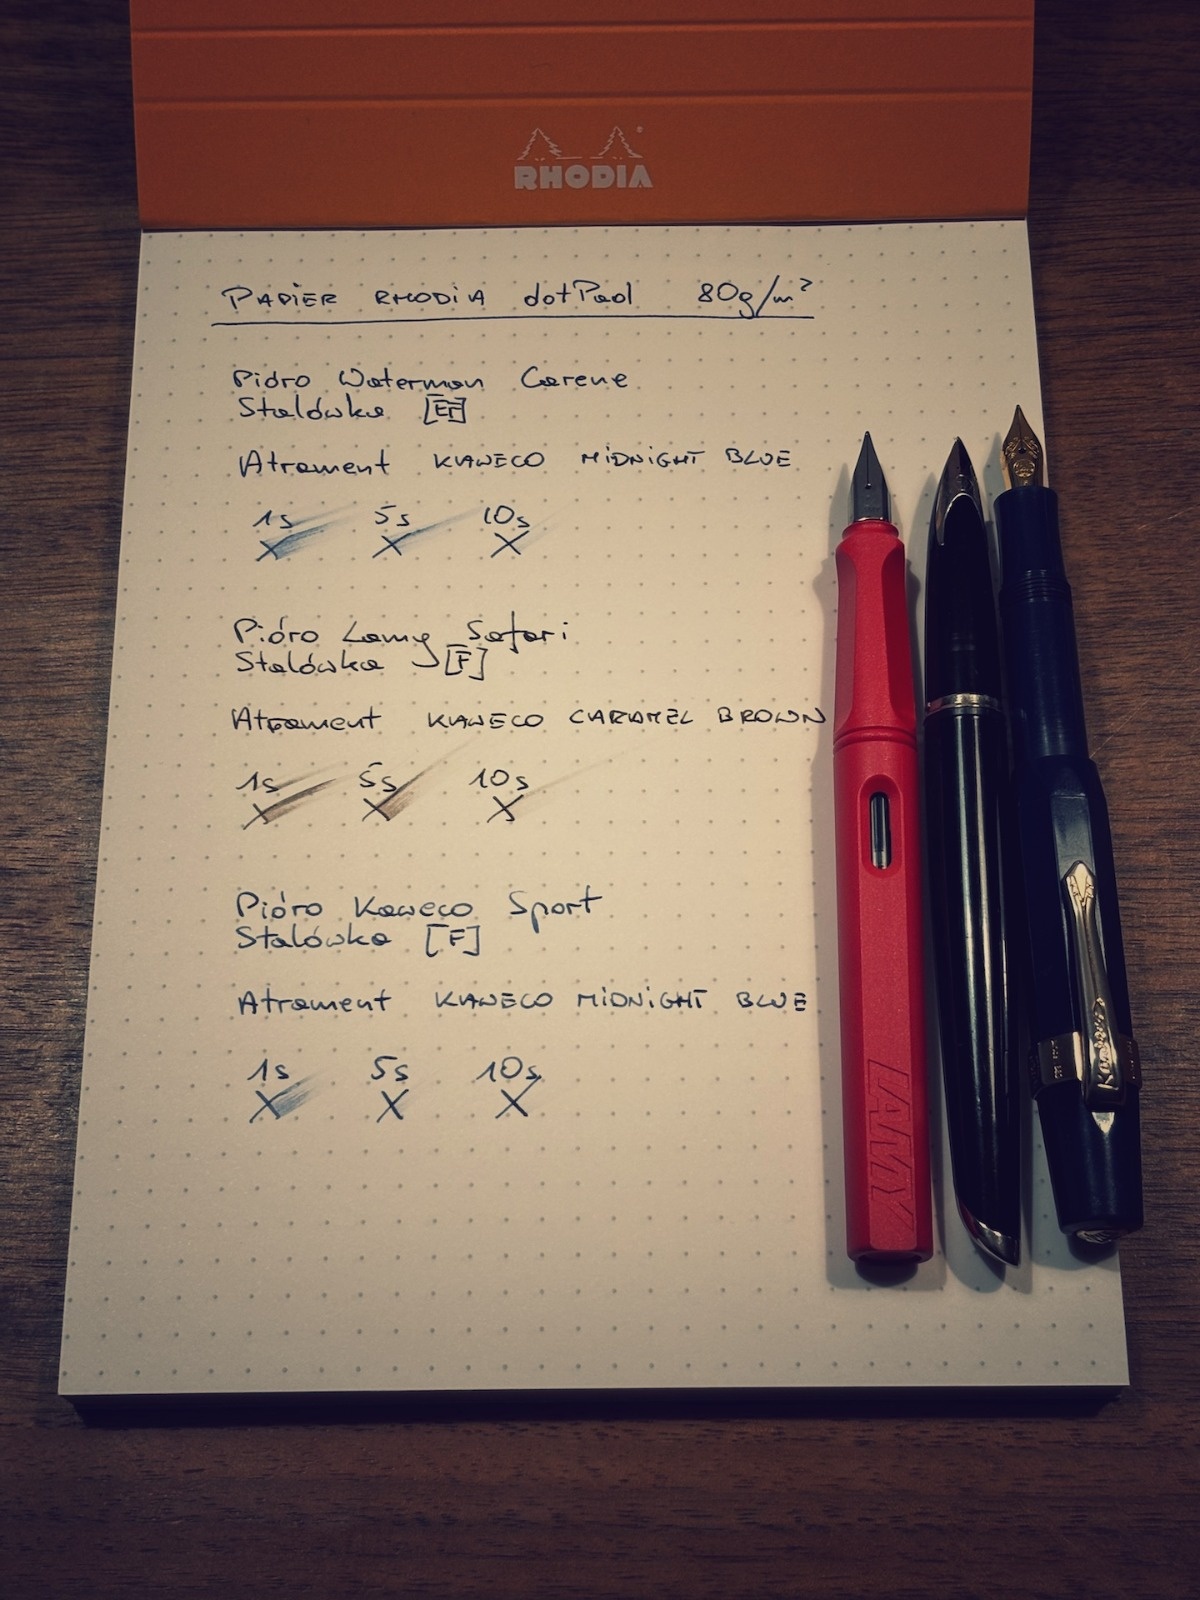 RHODIA
PAPIER RHODIA dotPad 80g/m²
Pióro Waterman Carene
Stalówka [EF]
Atrament KAWECO MIDNIGHT BLUE
1s 5s 10s
X X X
Pióro Lamy Safari
Stalówka [F]
Atrament KAWECO CARAMEL BROWN
1s 5s 10s
X X X
Pióro Kaweco Sport
Stalówka [F]
Atrament KAWECO MIDNIGHT BLUE
1s 5s 10s
X X X
LAMY
Kaweco